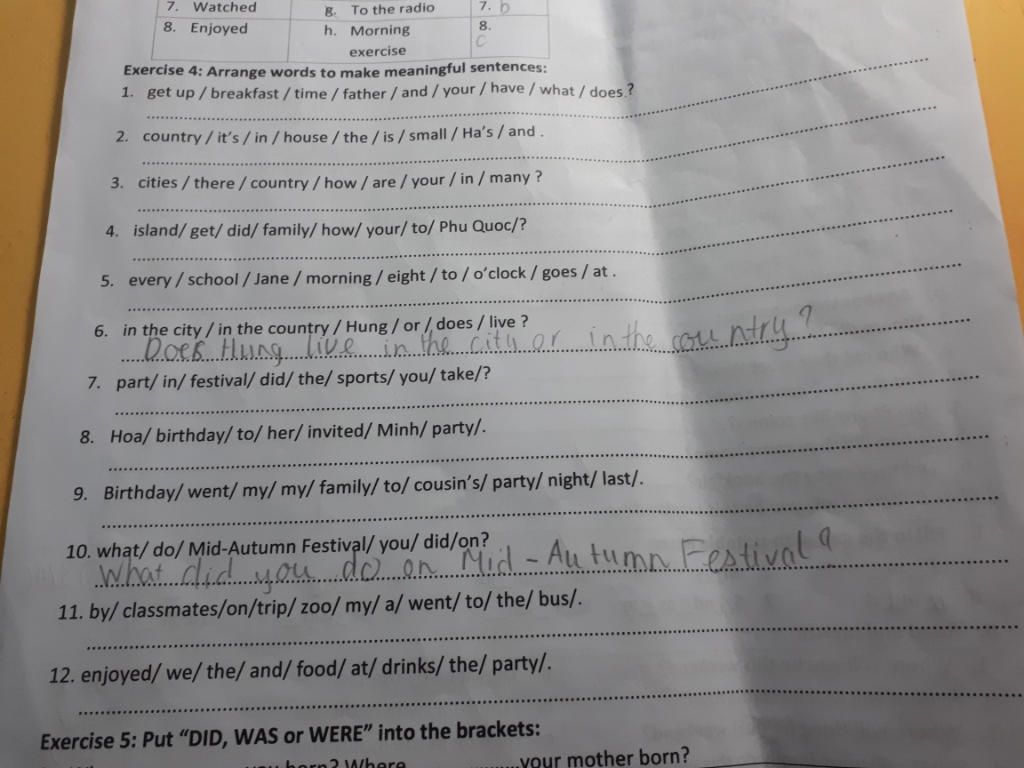 7. Watched g. To the radio 7. b
8. Enjoyed h. Morning exercise 8. c
Exercise 4: Arrange words to make meaningful sentences:
1. get up / breakfast / time / father / and / your / have / what / does ?
2. country / it's / in / house / the / is / small / Ha's / and .
3. cities / there / country / how / are / your / in / many ?
4. island/ get/ did/ family/ how/ your/ to/ Phu Quoc/?
5. every / school / Jane / morning / eight / to / o'clock / goes / at .
6. in the city / in the country / Hung / or / does / live ?
Does Hung live in the city or in the country?
7. part/ in/ festival/ did/ the/ sports/ you/ take/?
8. Hoa/ birthday/ to/ her/ invited/ Minh/ party/.
9. Birthday/ went/ my/ my/ family/ to/ cousin's/ party/ night/ last/.
10. what/ do/ Mid-Autumn Festival/ you/ did/on?
What did you do on Mid - Autumn Festival?
11. by/ classmates/on/trip/ zoo/ my/ a/ went/ to/ the/ bus/.
12. enjoyed/ we/ the/ and/ food/ at/ drinks/ the/ party/.
Exercise 5: Put "DID, WAS or WERE" into the brackets:
you born? Where your mother born?